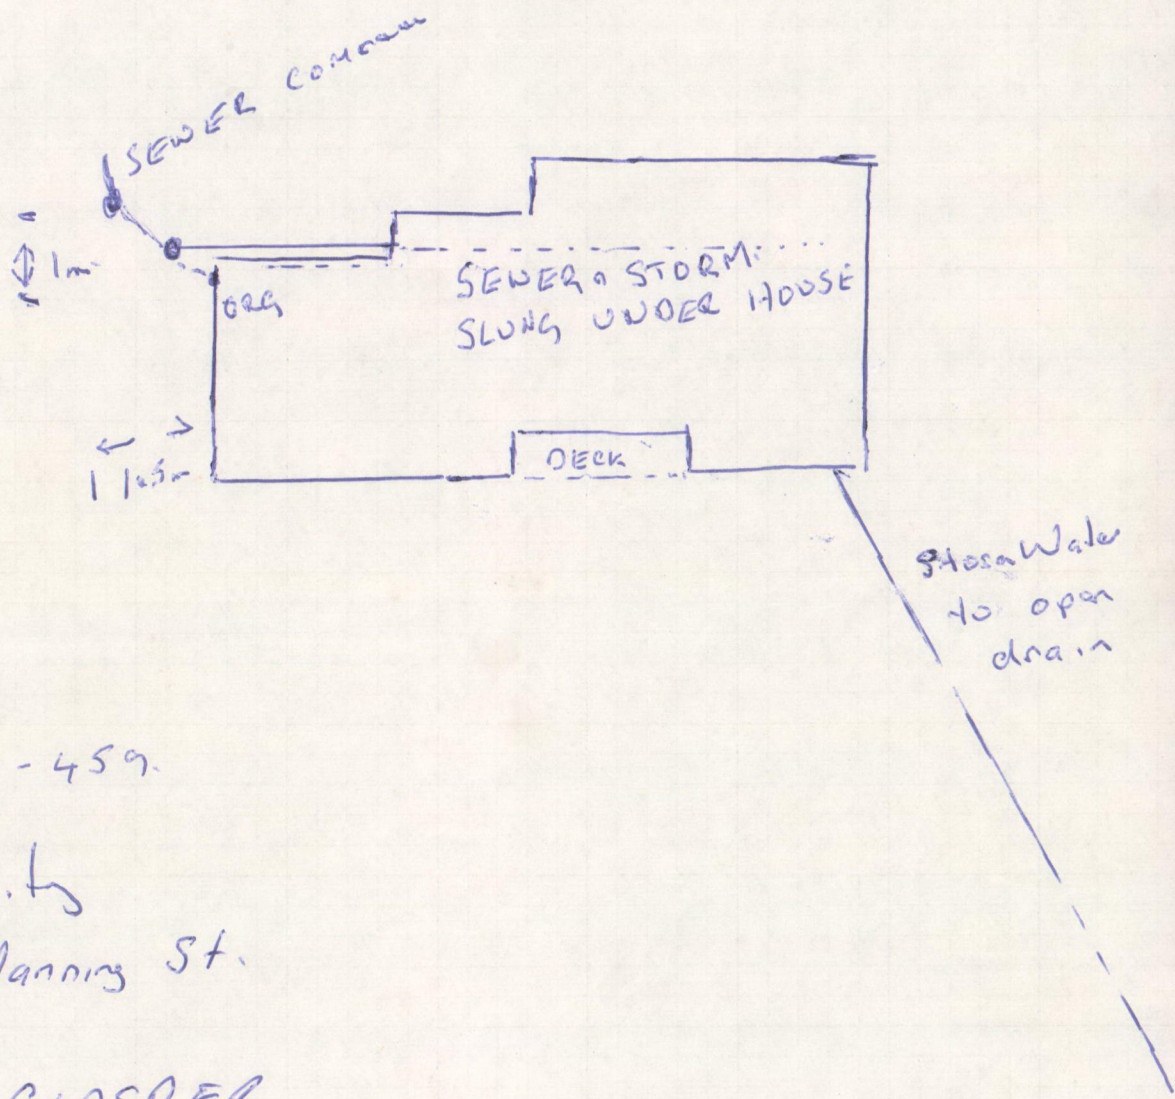 SEWER
1m
ORG
SEWER & STORM.
SLUNG UNDER HOUSE
1.5m
DECK
StormWater
to open
drain
- 459.
lanning St.